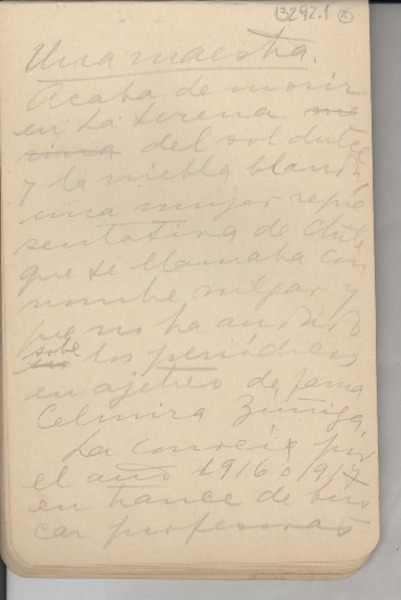 13292.1 (1)
Una maestra.
Acaba de morir
en La Serena
del sol dulce
y la niebla blanda,
una mujer repre
sentativa de Chile
que se llamaba con
nombre vulgar y
que no ha andado
sobre los periódicos
en ajetreo de fama
Celmira Zúñiga,
La conocí por
el año 1916 o 1917
en trance de bus
car profesoras